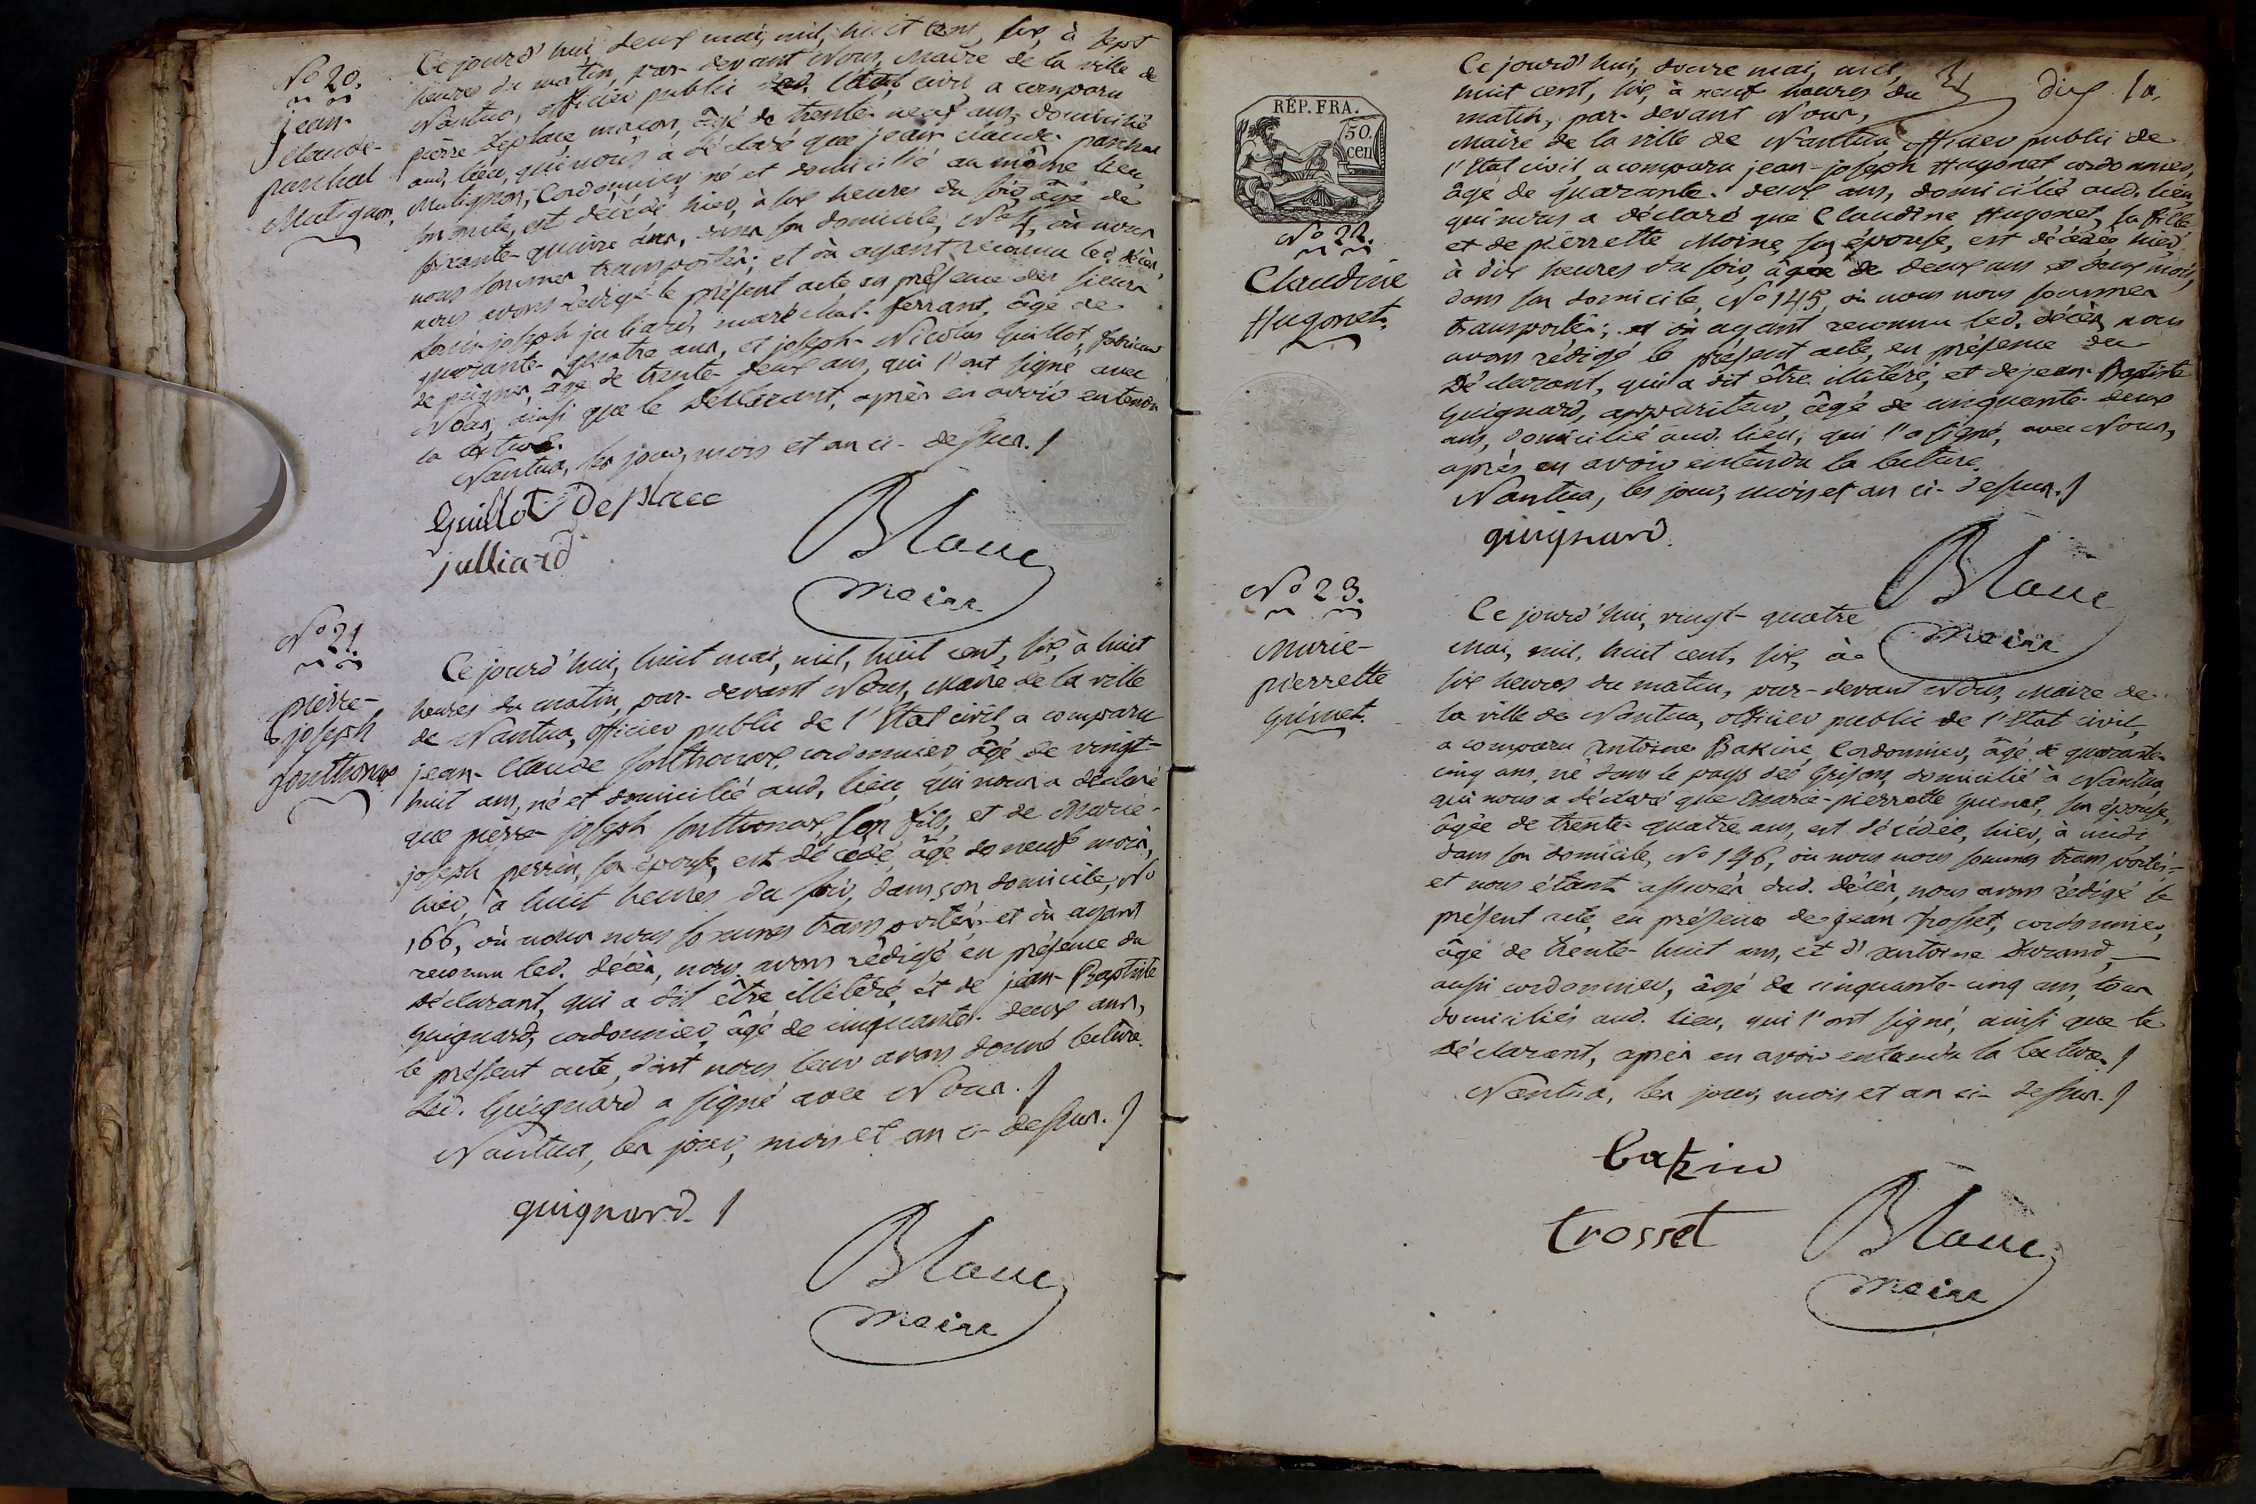 No 20.
jean-
claude-
paschal
Matignon.
Ce jourd'hui, deux mai, mil, huit cent, six, à sept
heures du matin, par-devant Nous, Maire de la ville de
Nantua, officier public de l'Etat civil a comparu
pierre Deplace maçon, âgé de trente-neuf ans, domicilié
aud. lieu, qui nous a déclaré que jean-claude-paschal
Matignon, Cordonnier, né et domicilié au même lieu,
son oncle, est décédé hier, à six heures du soir, âgé de
soixante-quinze ans, dans son domicile, No 4, où nous
nous sommes transportés; et où ayant reconnu led. décès,
nous avons rédigé le présent acte en présence des sieurs
joseph juliard, maréchal-ferrant, âgé de
quarante-quatre ans, et joseph-Nicolas Guillot, fabricant
de peignes, âgé de trente-deux ans, qui l'ont signé avec
Nous, ainsi que le Déclarant, après en avoir entendu
la lecture.
Nantua, les jour, mois et an ci-dessus.
Guillot Deplace
julliard
Blanc
Maire
No 21.
pierre-
joseph
sonthonax
Ce jourd'hui, huit mai, mil, huit cent, six, à huit
heures du matin, par-devant Nous, Maire de la ville
de Nantua, officier public de l'Etat civil, a comparu
jean-Claude sonthonax cordonnier, âgé de vingt-
huit ans, né et domicilié aud. lieu, qui nous a déclaré
que pierre-joseph sonthonax, son fils, et de Marie-
joseph perrin, son épouse, est décédé, âgé de neuf mois,
hier, à huit heures du soir, dans son domicile, No
166, où nous nous sommes transportés; et où ayant
reconnu led. décès, nous avons rédigé en présence du
Déclarant, qui a dit être illitéré, et de jean-Baptiste
guignard, cordonnier, âgé de cinquante-deux ans,
le présent acte, dont nous leur avons donné lecture.
Led. Guignard a signé avec Nous.
Nantua, les jour, mois et an ci-dessus.
guignard.
Blanc
Maire
dix 10.
RÉP. FRA.
50.
cen
No 22.
Claudine
Hugonet.
Ce jourd'hui, douze mai, mil,
huit cent, six, à neuf heures du
matin, par-devant Nous,
Maire de la ville de Nantua officier public de
l'Etat civil, a comparu jean-joseph Hugonet cordonnier,
âgé de quarante-deux ans, domicilié aud. lieu,
qui nous a déclaré que Claudine Hugonet, sa fille,
et de pierrette Moine, son épouse, est décédée hier,
à dix heures du soir, âgée de deux ans et deux mois,
dans son domicile, No 145, où nous nous sommes
transportés; et où ayant reconnu led. décès, nous
avons rédigé le présent acte, en présence du
Déclarant, qui a dit être illitéré, et de jean-Baptiste
Guignard, appariteur, âgé de cinquante-deux
ans, domicilié aud. lieu, qui l'a signé, avec Nous,
après en avoir entendu la lecture.
Nantua, les jour, mois et an ci-dessus.
guignard.
Blanc
Maire
No 23.
Marie-
pierrette
Guinet.
Ce jourd'hui, vingt-quatre
Mai, mil, huit cent, six, à
six heures du matin, par-devant Nous, Maire de
la ville de Nantua, officier public de l'Etat civil,
a comparu Antoine Bakine, Cordonnier, âgé de quarante-
cinq ans, né dans le pays des Grisons, domicilié à Nantua,
qui nous a déclaré que Marie-pierrette Guinet, son épouse,
âgée de trente-quatre ans, est décédée, hier, à midi
dans son domicile, No 196, où nous nous sommes transportés-
et nous étant assurés dud. décès, nous avons rédigé le
présent acte, en présence de jean Trosset, cordonnier,
âgé de trente-huit ans, et d'Antoine Durand,
aussi cordonnier, âgé de cinquante-cinq ans, tous
domiciliés aud. lieu, qui l'ont signé, ainsi que le
Déclarant, après en avoir entendu la lecture.
Nantua, les jour, mois et an ci-dessus.
bakin
trosset
Blanc
Maire